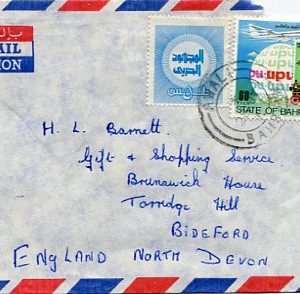 AIL
ION
المجهود
الحربي
upu
60
FILS
STATE OF BAHR
AWALI
BAH
H. L. Barnett.
Gift & Shopping Service
Brunswick House
Torridge Hill
BIDEFORD
ENGLAND NORTH DEVON